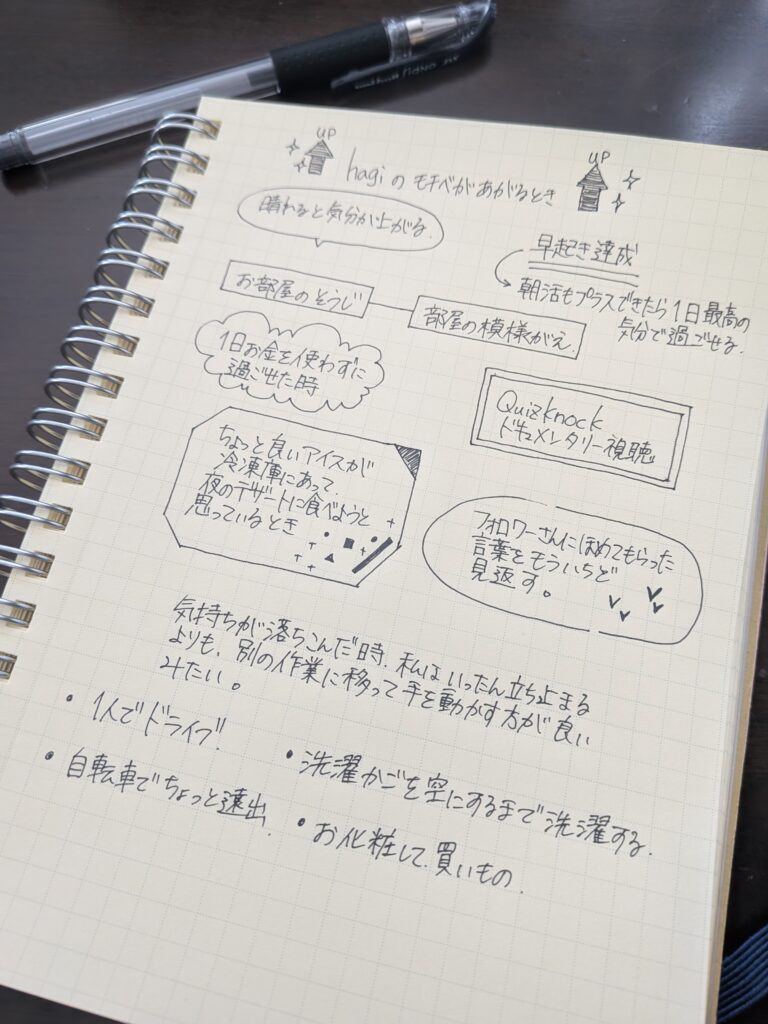 UP
UP
hagiのモチベがあがるとき
晴れると気分が上がる。
早起き達成
朝活もプラスできたら1日最高の
気分で過ごせる。
お部屋のそうじ
部屋の模様がえ
1日お金を使わずに
過ごせた時
Quizknock
ドキュメンタリー視聴
ちょっと良いアイスが
冷凍庫にあって、
夜のデザートに食べようと
思っているとき
フォロワーさんにほめてもらった
言葉をもういちど
見返す。
気持ちが落ちこんだ時、私はいったん立ち止まる
よりも、別の作業に移って手を動かす方が良い
みたい。
• 1人でドライブ!
• 自転車でちょっと遠出
• 洗濯かごを空にするまで洗濯する。
• お化粧して、買いもの。